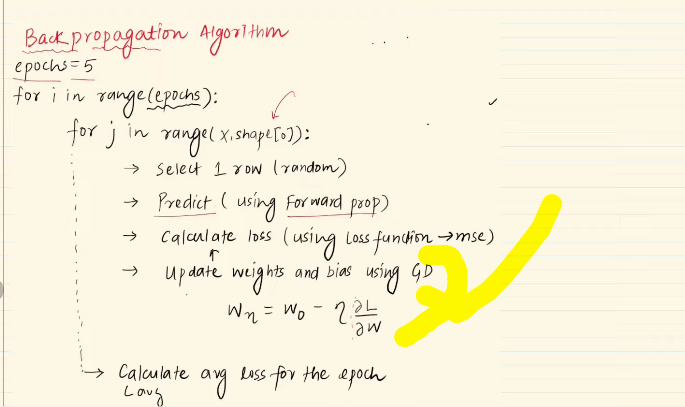 Backpropagation Algorithm
epochs = 5
for i in range(epochs):
for j in range(X.shape[0]):
→ Select 1 row (random)
→ Predict (using Forward prop)
→ Calculate loss (using loss function → mse)
→ Update weights and bias using GD
Wn = Wo - η ∂L/∂W
→ Calculate avg loss for the epoch
Lavg